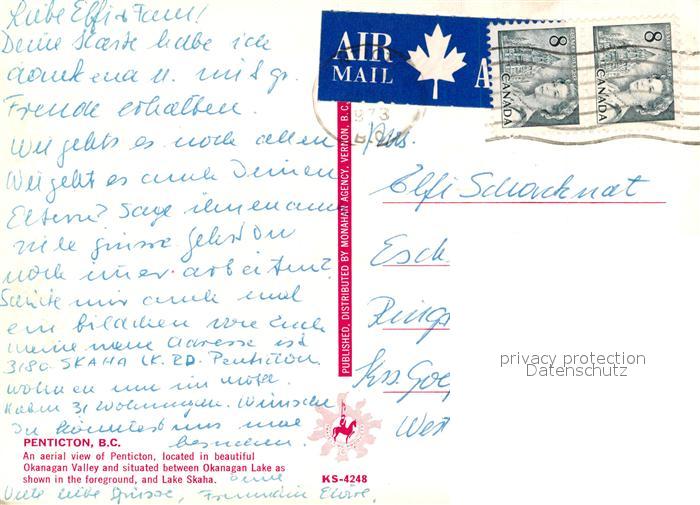 Liebe Elfi u Fam!
Deine Karte habe ich
dankend u. mit gr.
Freude erhalten.
Wie gehts es noch allen
Wie geht es auch Deinen
Eltern? Sage ihnen auch
viele grüsse gehst Du
noch imer arbeiten?
Schicke mir auch mal
ein bildchen von Euch
meine neue Adresse ist
3180 SKAHA LK. RD. Penticton
wohnen nun im
haben 31 Wohnungen. Wünsche
Du könntest uns mal
besuchen.
Deine
Viele liebe Grüsse, Freundin
AIR
MAIL
A
1973
B.C.
8
CANADA
8
CANADA
Mrs.
Elfi Schacknat
Esch
Ring
Krs. Goe
West
privacy protection
Datenschutz
PUBLISHED, DISTRIBUTED BY MONAHAN AGENCY, VERNON, B.C.
PENTICTON, B.C.
An aerial view of Penticton, located in beautiful
Okanagan Valley and situated between Okanagan Lake as
shown in the foreground, and Lake Skaha.
KS-4248